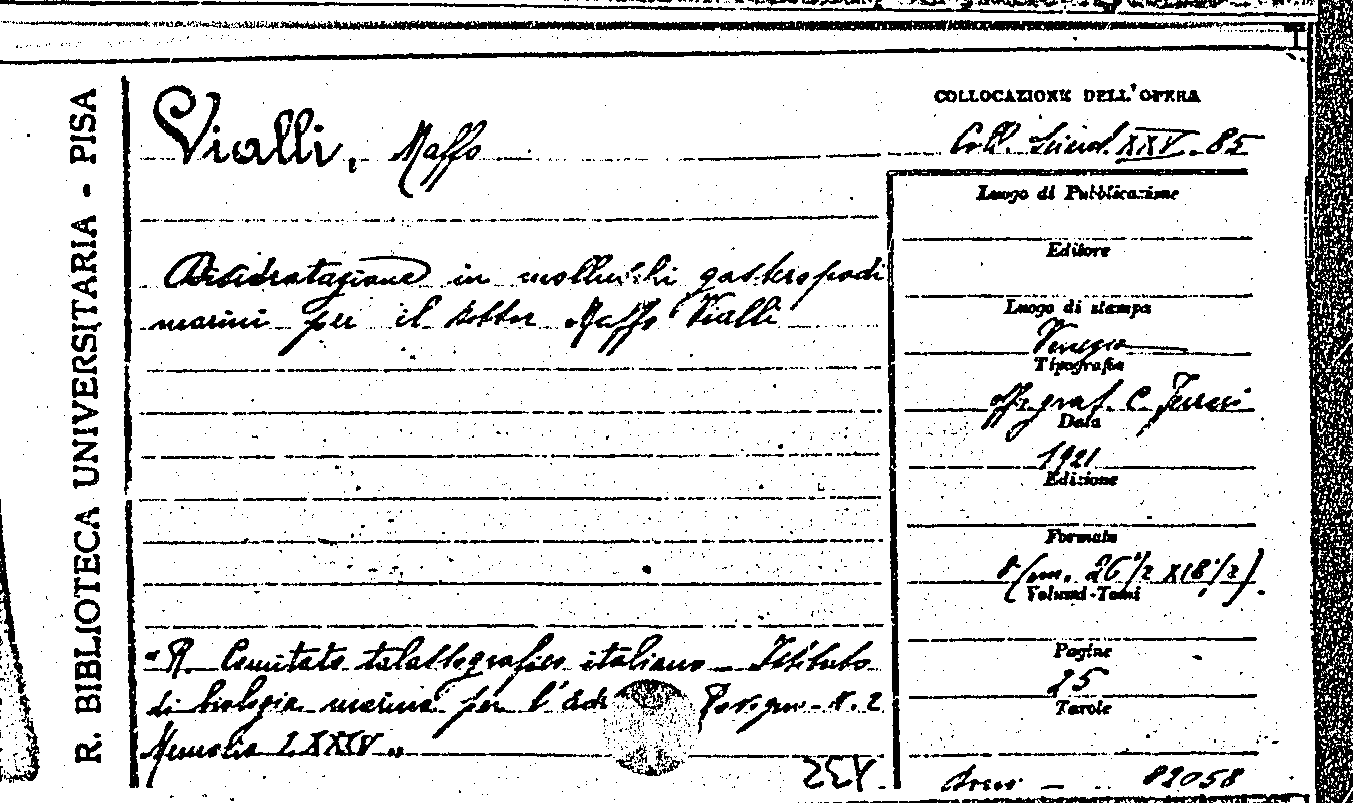 R. BIBLIOTECA UNIVERSITARIA - PISA
Vialli, Maffo
Disidratazione in molluschi gasteropodi
marini per il dottor Maffo Vialli
"R. Comitato talassografico italiano - Istituto
di biologia marina per l'Adr Rovigno - N. 2
Memoria LXXXV"
COLLOCAZIONE DELL'OPERA
Coll. Sciend. XXV. 85
Luogo di Pubblicazione
Editore
Luogo di stampa
Venezia
Tipografia
off. graf. C. Ferrari
Data
1921
Edizione
Formato
8 (cm. 26 1/2 X 18 1/2).
Volumi-Tomi
Pagine
25
Tavole
82058